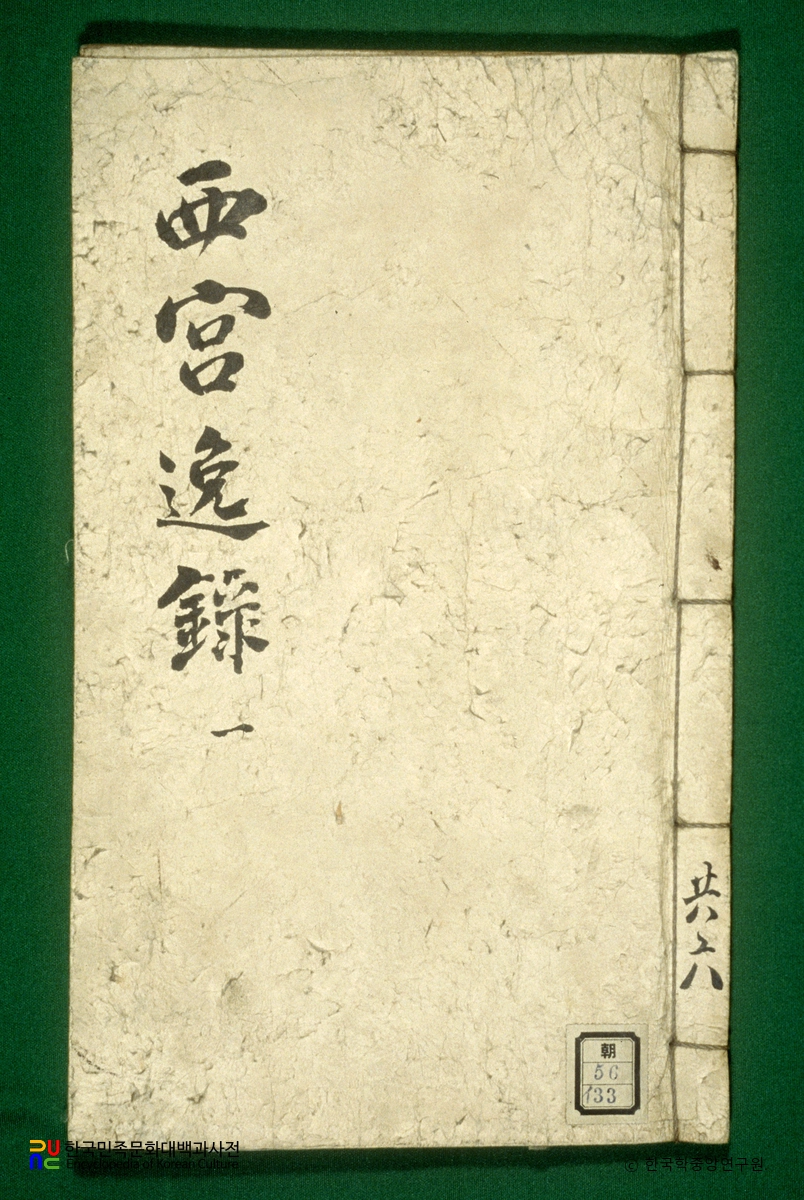 西宮逸錄
一
共六
朝
56
133
한국민족문화대백과사전
Encyclopedia of Korean Culture
© 한국학중앙연구원